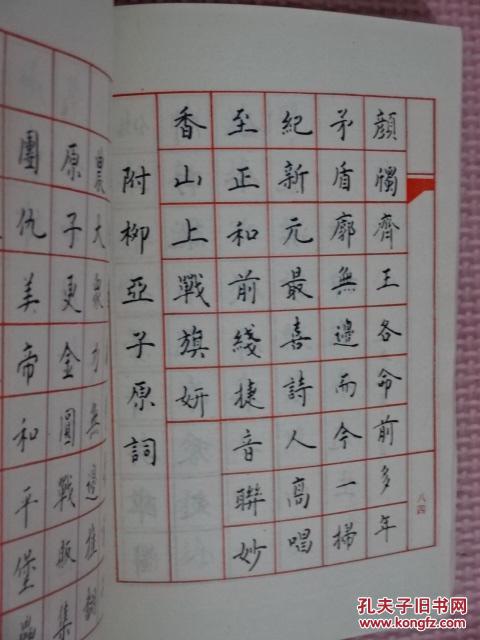 顏斶齊王各命前多年
矛盾廓無邊而今一掃
紀新元最喜詩人高唱
至正和前綫捷音聯妙
香山上戰旗妍
附柳亞子原詞
八四
農大衆力無邊推翻
原子更金圓戰販集
團仇美帝和平堡壘
孔夫子旧书网